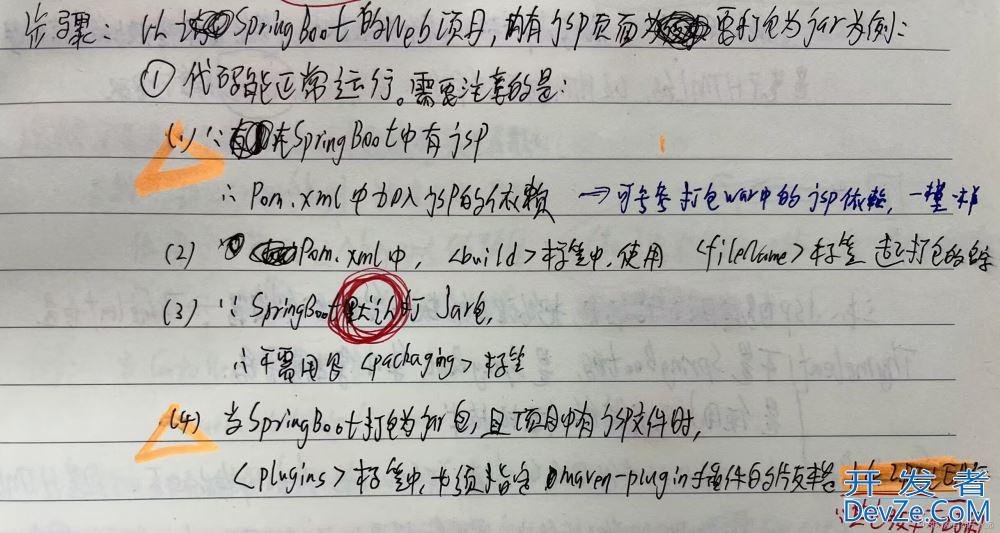 步骤：以SpringBoot的Web项目，有jsp页面需打包为jar为例：
① 代码能正常运行。需要注意的是：
(1) ∵在SpringBoot中有jsp
∴ Pom.xml中加入jsp的依赖 → 可参考打包war中的jsp依赖，一模一样
(2) Pom.xml中，<build>标签中，使用 <fileName>标签 起打包的名字
(3) ∵ SpringBoot默认打 Jar包，
∴不需用写 <packaging> 标签
(4) 当SpringBoot打包为jar包，且项目中有jsp文件时，
<plugins>标签中，必须指定 maven-plugin插件的版本
开发者
DevZe.Com